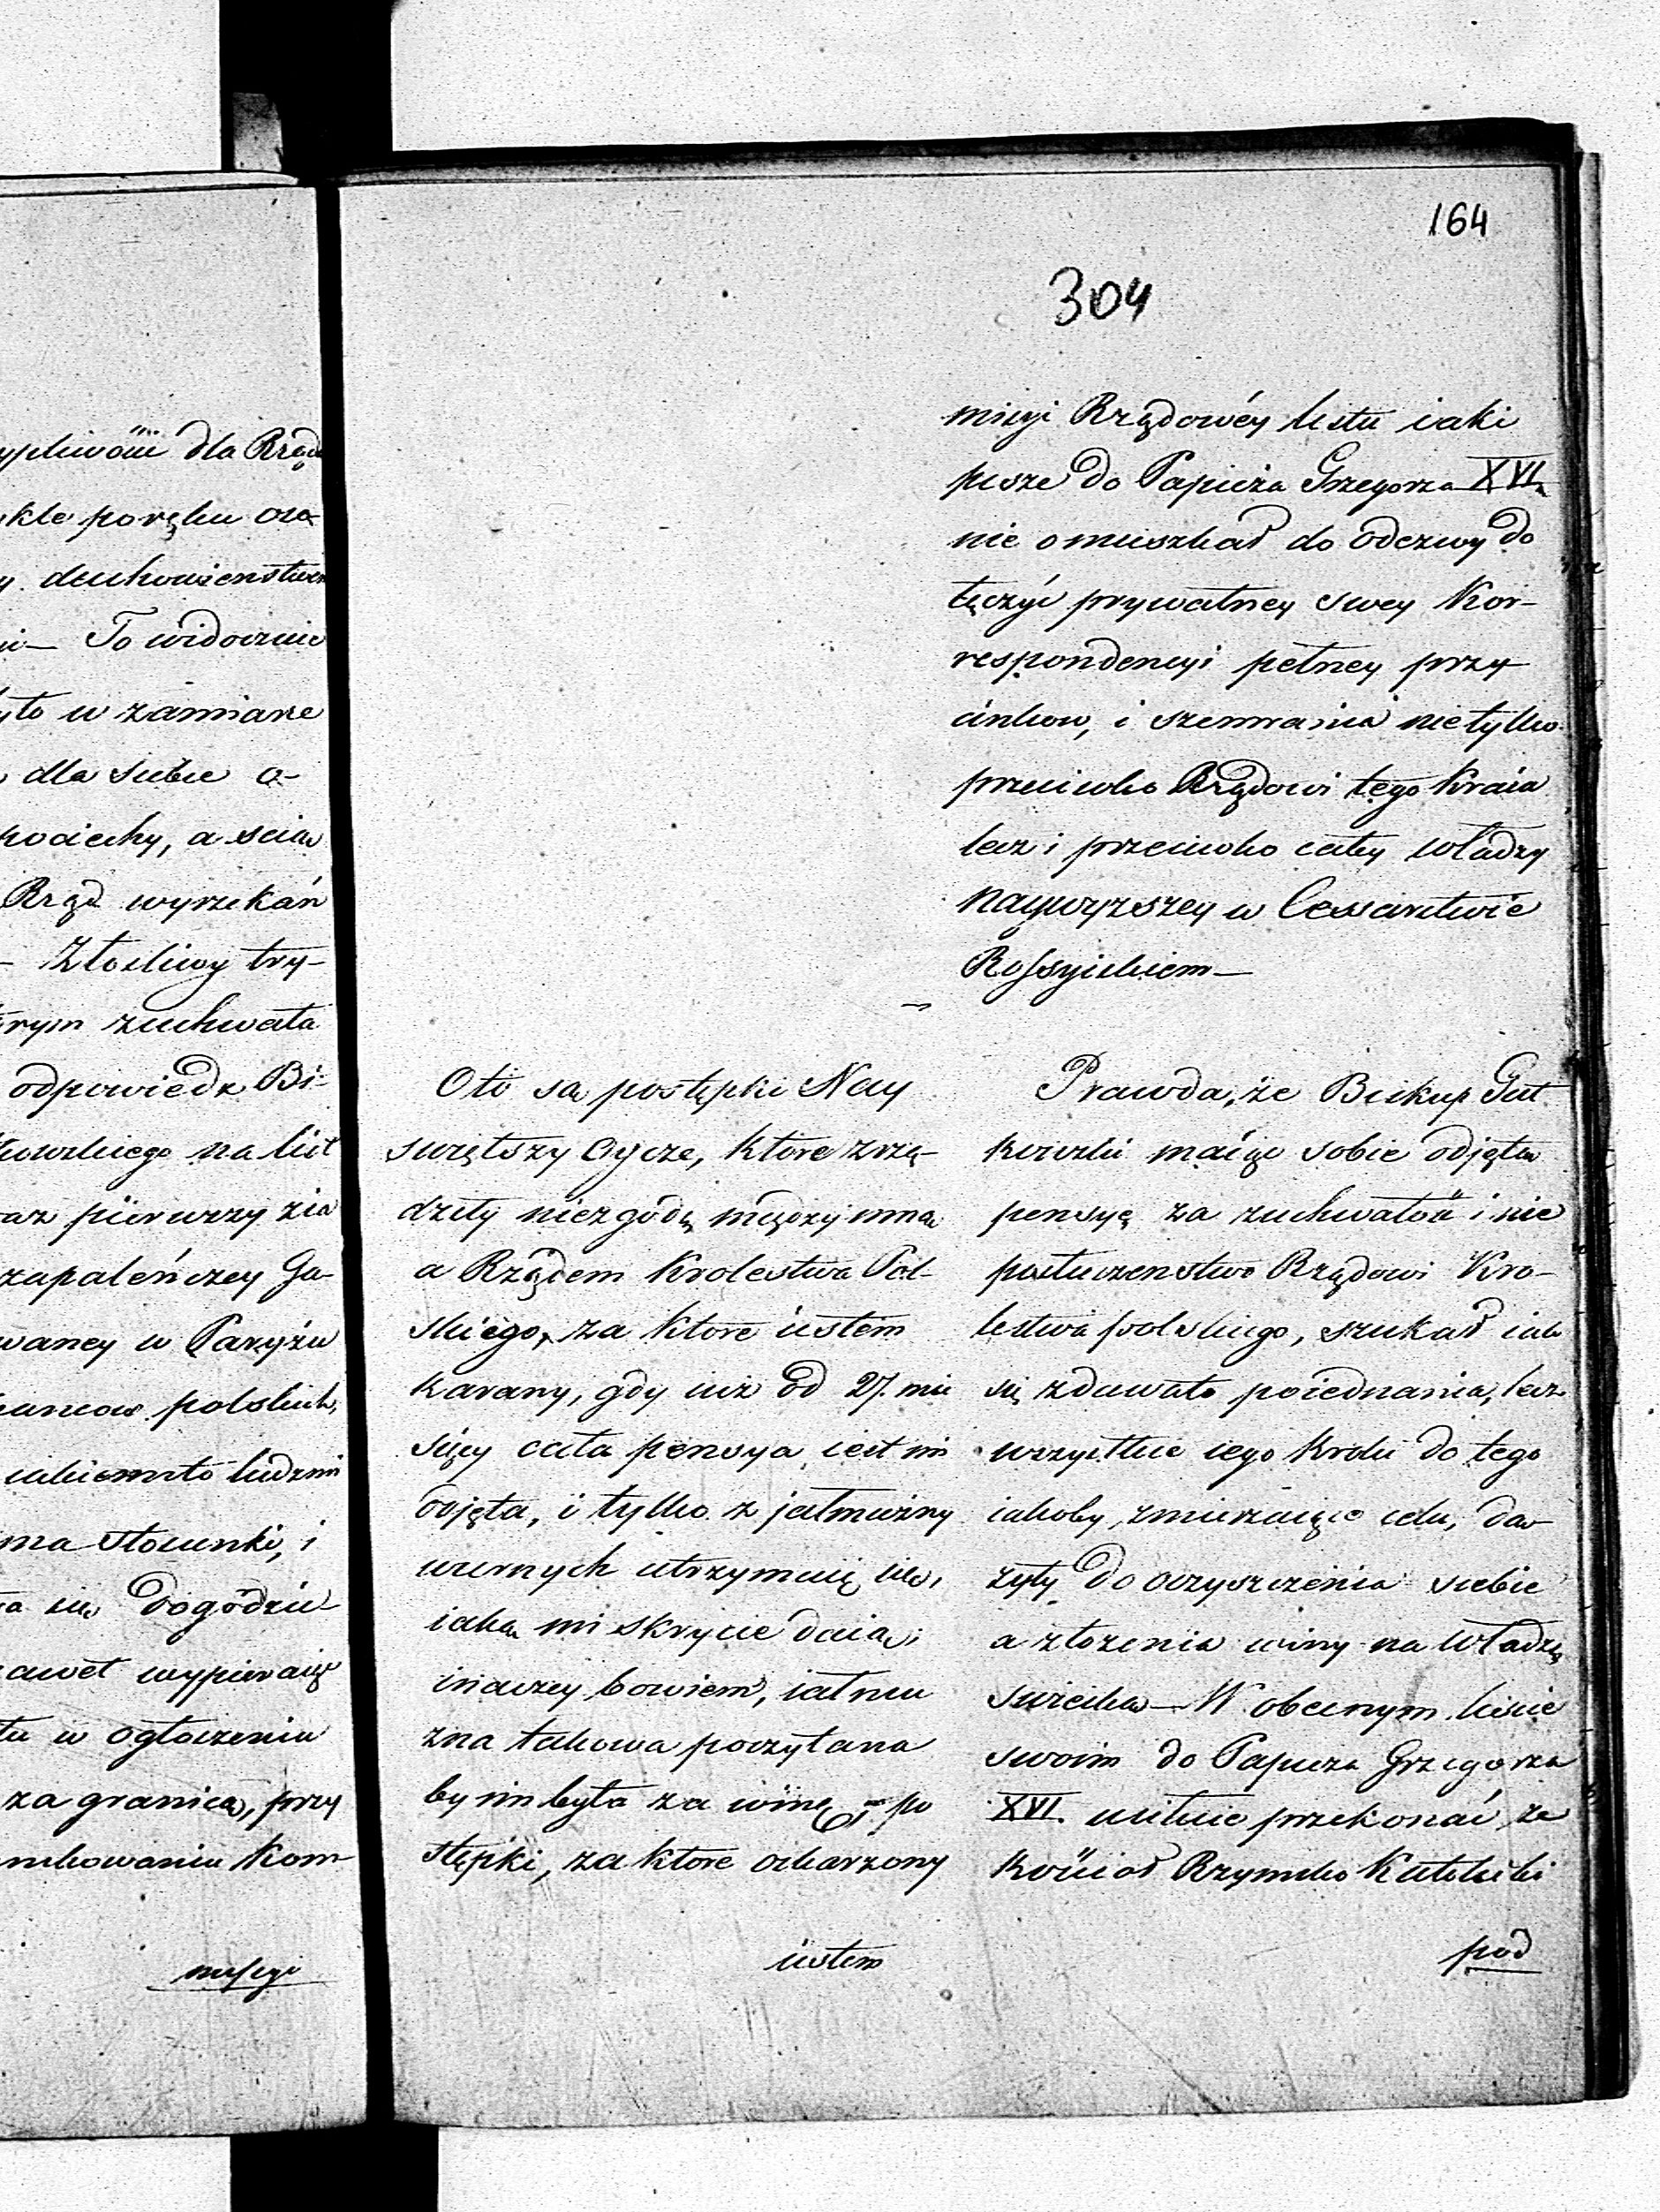 ypliwości dla Rządu
poręku
duchowienstwem
To widocznie
w zamiarze
dla siebie o-
pociechy, a
Rząd wyrzekań
Złosliwy try-
zuchwała
odpowiedz Bi-
na list
pierwszy
zapaleńczey Ga-
w Paryżu
polskich,
ludzmi
ma stosunki, i
Dogodzie
wypieraiąc
w ogłoszeniu
za granicą, przy
Kom-
missyi
164
304
missyi Rządowéy listu iaki
pisze do Papieża Grzegorza XVI.
nie omieszkał do odezwy do
łączyć prywatney swey Kor-
respondencyi pełney przy
cinkow, i szemrania nietylko
przeciwko Rządowi tego Kraia
lecz i przeciwko całey władzy
naywyzszey w Cessarstwie
Rossyiskiem—
Oto są postępki Nay
swiętszy Oycze, ktore zrzą-
dziły niezgodę między mną
a Rządem Krolestwa Pol-
skiego, za ktore iestem
karany, gdy iuż od 27. mie
sięcy cała pensya iest mi
odjęta, i tylko z jałmużny
wiernych utrzymuię się,
iaką mi skrycie daią;
inaczey bowiem, iałmu
zna takowa poczytana
by im była za winę. po
stępki, za ktore oskarzony
iestem
Prawda, że Biskup Gut
kowski maiąc sobie odjętą
pensyą za zuchwałość i nie
posłuszenstwo Rządowi Kro-
lestwa polskiego, szukał iak
się zdawało poiednania, lecz
wszystkie iego kroki do tego
iakoby zmierzaiąc celu, dą-
żyły do oczyszczenia siebie
a złożenia winy na Władzę
swiecką— W obecnym liscie
swoim do Papieza Grzegorza
XVI. usiłuie przekonać, ze
Kościoł Rzymsko Katolicki
pod